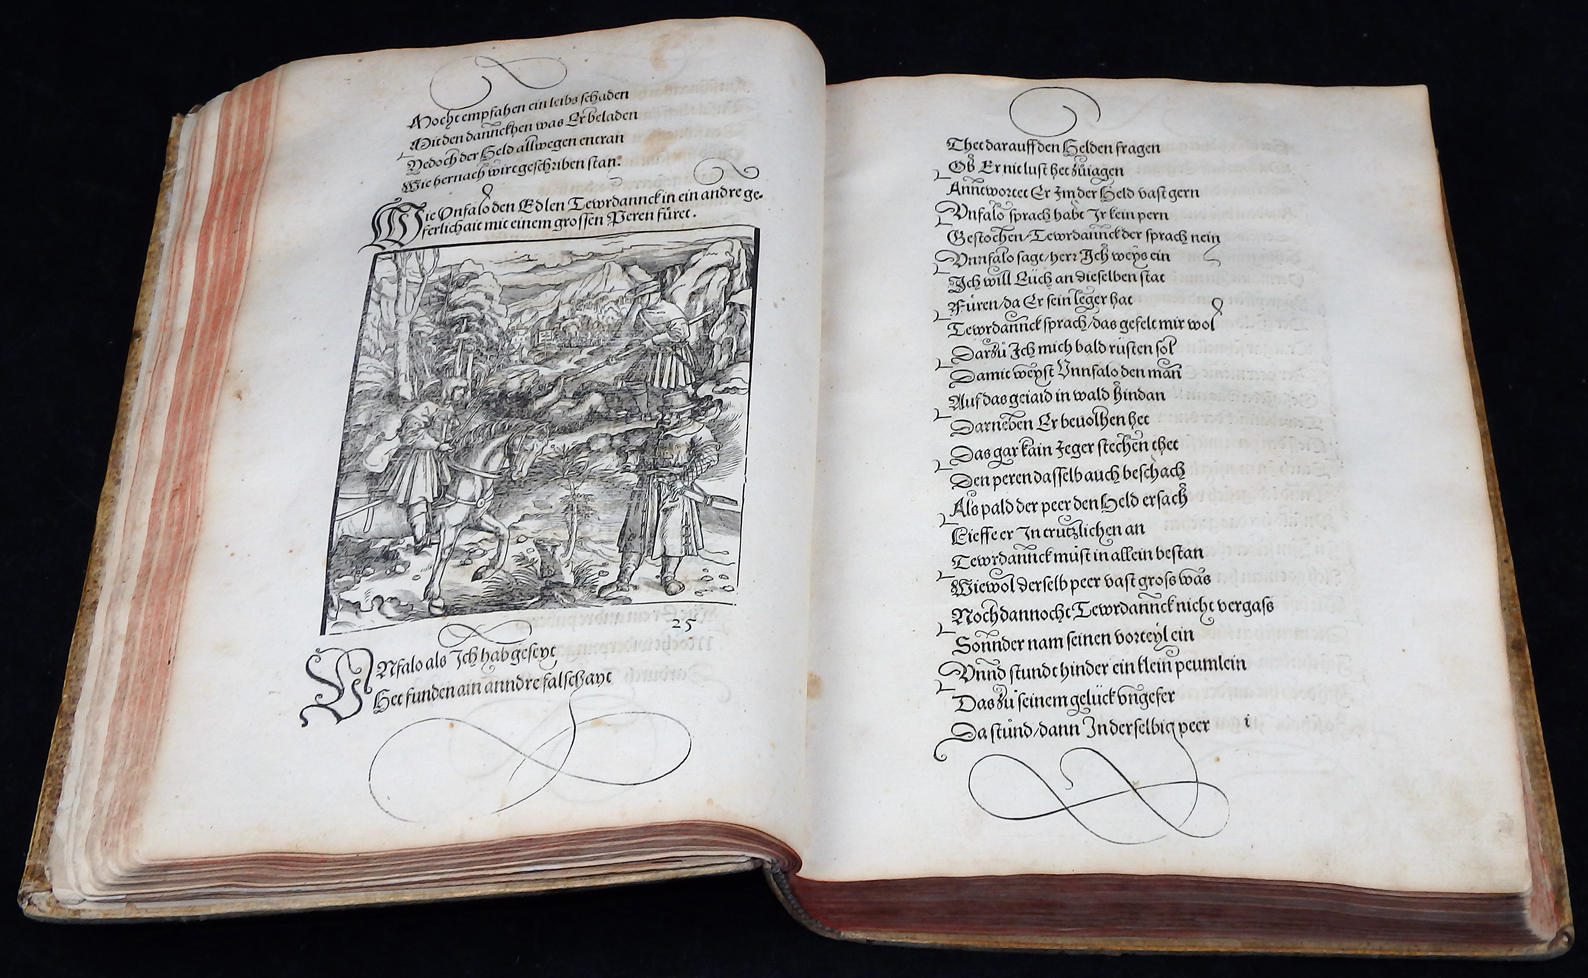 Mocht empfahen ein leibs schaden
Mit den dannckhen was Er beladen
Yedoch der Held allwegen entran
Wie hernach wirt geschriben stan.
Wie Vnfalo den Edlen Tewrdannck in ein andre ge-
ferlichait mit einem grossen Peren füret.
25
VNfalo als Ich hab geseyt
Het funden ain anndre falschayt
Thet darauff den Helden fragen
Ob Er nit lust het zů iagen
Anntwortet Er Im der Held vast gern
Vnfalo sprach habt Ir kein pern
Gestochen/Tewrdannck der sprach nein
Vnnfalo sagt/herr Ich weys ein
Ich will Eüch an dieselben stat
Füren/da Er sein leger hat
Tewrdannck sprach/das gefelt mir wol
Darzů Ich mich bald rusten sol
Damit weyst Vnnfalo den man
Auf das geiaid in wald hindan
Darneben Er beuolhen het
Das gar kain Jeger stechen thet
Den peren dasselb auch beschach
Als pald der peer den Held ersach
Lieff er In trutzlichen an
Tewrdannck můst in allein bestan
Wiewol derselb peer vast gross was
Noch dannocht Tewrdannck nicht vergass
Sonnder nam seinen vorteyl ein
Vnnd stundt hinder ein klein peumlein
Das zů seinem gelück vngefer
Da stůnd/dann In derselbig peer
i